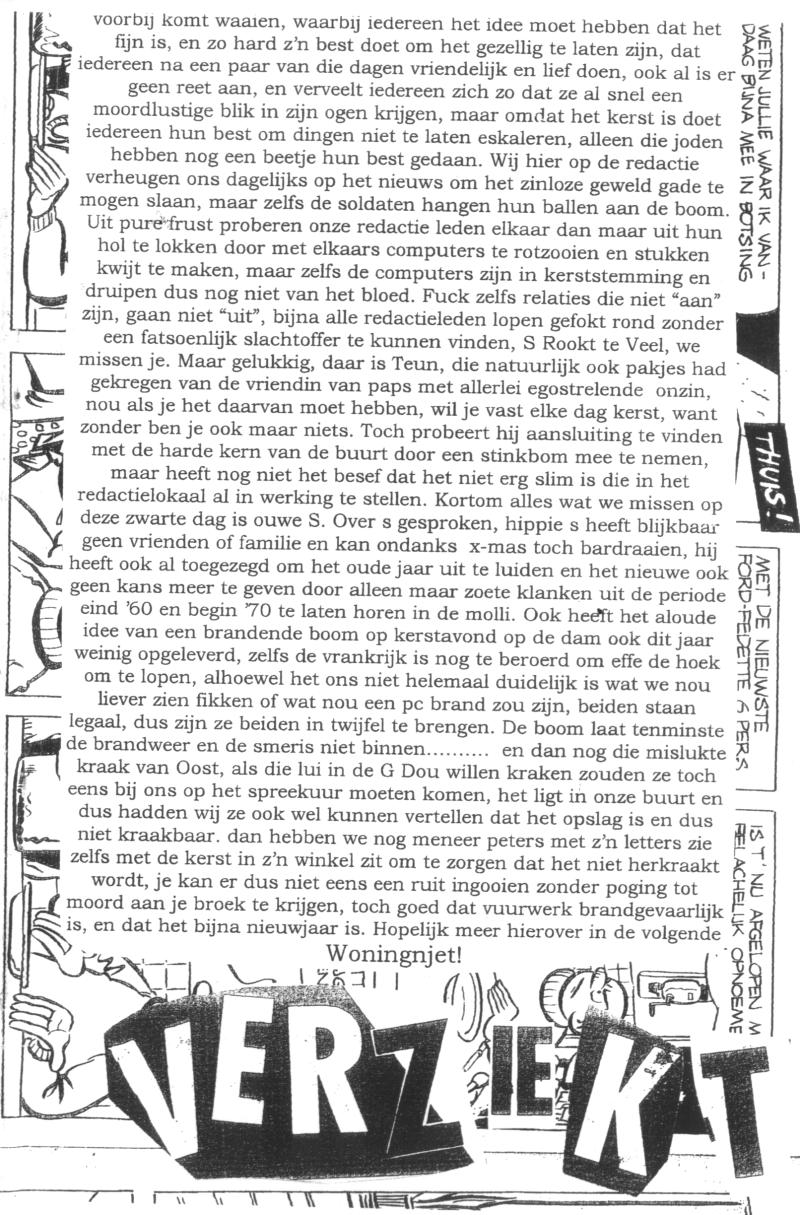 voorbij komt waaien, waarbij iedereen het idee moet hebben dat het
fijn is, en zo hard z'n best doet om het gezellig te laten zijn, dat
iedereen na een paar van die dagen vriendelijk en lief doen, ook al is er
geen reet aan, en verveelt iedereen zich zo dat ze al snel een
moordlustige blik in zijn ogen krijgen, maar omdat het kerst is doet
iedereen hun best om dingen niet te laten eskaleren, alleen die joden
hebben nog een beetje hun best gedaan. Wij hier op de redactie
verheugen ons dagelijks op het nieuws om het zinloze geweld gade te
mogen slaan, maar zelfs de soldaten hangen hun ballen aan de boom.
Uit pure frust proberen onze redactie leden elkaar dan maar uit hun
hol te lokken door met elkaars computers te rotzooien en stukken
kwijt te maken, maar zelfs de computers zijn in kerststemming en
druipen dus nog niet van het bloed. Fuck zelfs relaties die niet “aan”
zijn, gaan niet “uit”, bijna alle redactieleden lopen gefokt rond zonder
een fatsoenlijk slachtoffer te kunnen vinden, S Rookt te Veel, we
missen je. Maar gelukkig, daar is Teun, die natuurlijk ook pakjes had
gekregen van de vriendin van paps met allerlei egostrelende onzin,
nou als je het daarvan moet hebben, wil je vast elke dag kerst, want
zonder ben je ook maar niets. Toch probeert hij aansluiting te vinden
met de harde kern van de buurt door een stinkbom mee te nemen,
maar heeft nog niet het besef dat het niet erg slim is die in het
redactielokaal al in werking te stellen. Kortom alles wat we missen op
deze zwarte dag is ouwe S. Over s gesproken, hippie s heeft blijkbaar
geen vrienden of familie en kan ondanks x-mas toch bardraaien, hij
heeft ook al toegezegd om het oude jaar uit te luiden en het nieuwe ook
geen kans meer te geven door alleen maar zoete klanken uit de periode
eind '60 en begin '70 te laten horen in de molli. Ook heeft het aloude
idee van een brandende boom op kerstavond op de dam ook dit jaar
weinig opgeleverd, zelfs de vrankrijk is nog te beroerd om effe de hoek
om te lopen, alhoewel het ons niet helemaal duidelijk is wat we nou
liever zien fikken of wat nou een pc brand zou zijn, beiden staan
legaal, dus zijn ze beiden in twijfel te brengen. De boom laat tenminste
de brandweer en de smeris niet binnen.......... en dan nog die mislukte
kraak van Oost, als die lui in de G Dou willen kraken zouden ze toch
eens bij ons op het spreekuur moeten komen, het ligt in onze buurt en
dus hadden wij ze ook wel kunnen vertellen dat het opslag is en dus
niet kraakbaar. dan hebben we nog meneer peters met z'n letters zie
zelfs met de kerst in z'n winkel zit om te zorgen dat het niet herkraakt
wordt, je kan er dus niet eens een ruit ingooien zonder poging tot
moord aan je broek te krijgen, toch goed dat vuurwerk brandgevaarlijk
is, en dat het bijna nieuwjaar is. Hopelijk meer hierover in de volgende
Woningnjet!
WETEN JULLIE WAAR IK VAN-
DAAG BIJNA MEE IN BOTSING
THUIS!
MET DE NIEUWSTE
IS T' NU AFGELOPEN M
BELACHELIJK OPNOEME
VERZIEKT